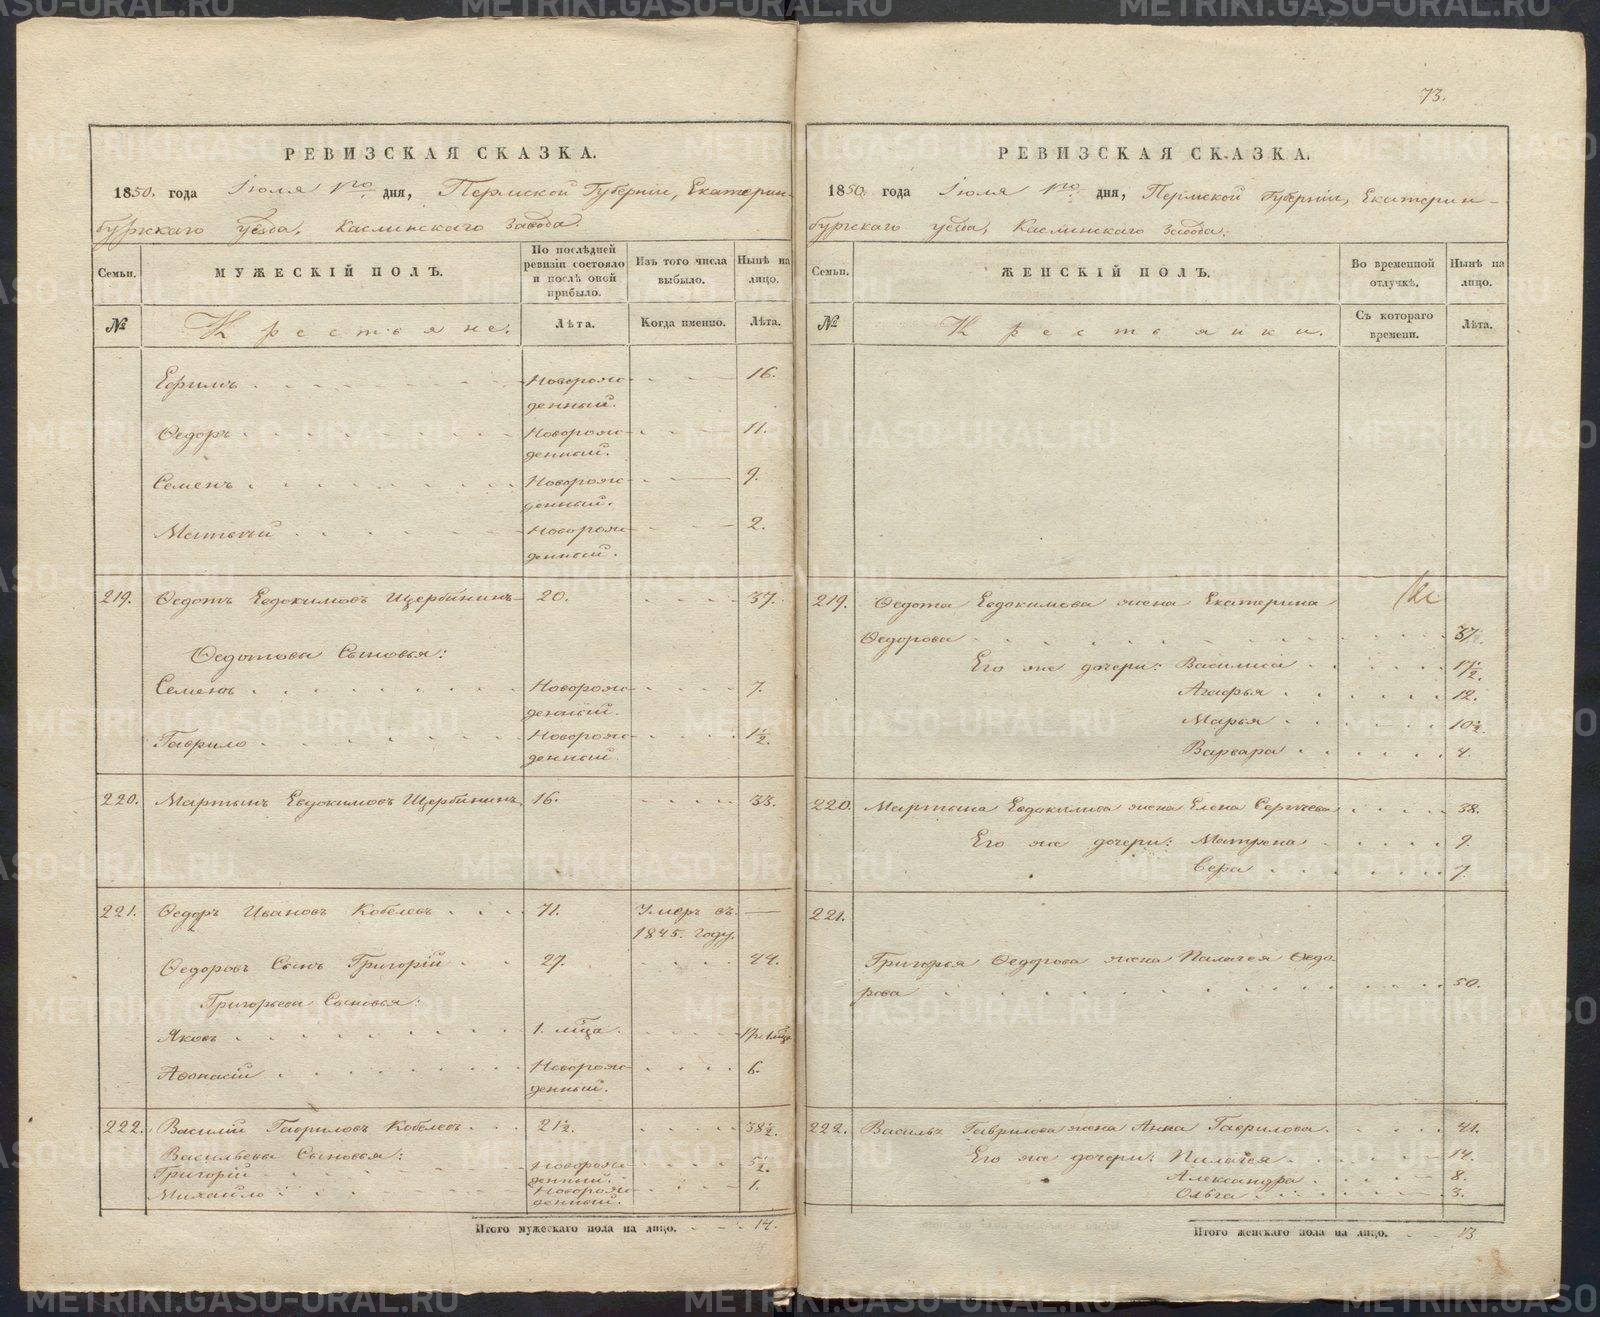 73.
РЕВИЗСКАЯ СКАЗКА.
1850. года Июля 1го дня, Пермской Губерніи, Екатерин-
бургскаго уѣзда, Каслинскаго завода.
Семьи. МУЖЕСКІЙ ПОЛЪ. По послѣдней ревизіи состояло и послѣ оной прибыло. Изъ того числа выбыло. Нынѣ на лицо.
№ Крестьяне. Лѣта. Когда именно. Лѣта.
Ефимъ Новорож- 16.
денный.
Ѳедоръ Новорож- 11.
денный.
Семенъ Новорож- 9.
денный.
Матвѣй Новорож- 2.
денный.
219. Ѳедотъ Евдокимовъ Щербининъ 20. 37.
Ѳедотовы Сыновья:
Семенъ Новорож- 7.
денный.
Гаврило Новорож- 1 1/2.
денный.
220. Мартынъ Евдокимовъ Щербининъ 16. 33.
221. Ѳедоръ Ивановъ Кобелевъ 71. Умеръ въ —
1845. году.
Ѳедоровъ Сынъ Григорій 27. 44.
Григорьевы Сыновья:
Яковъ 1. мѣца. 17 и 1 мѣц.
Аѳонасій Новорож- 6.
денный.
222. Василій Гавриловъ Кобелевъ 21 1/2. 38 1/2.
Васильевы Сыновья:
Григорій Новорож- 5 1/2.
денный.
Михайло Новорож- 1.
денный.
Итого мужескаго пола на лицо. 14.
РЕВИЗСКАЯ СКАЗКА.
1850. года Июля 1го дня, Пермской Губерніи, Екатерин-
бургскаго уѣзда, Каслинскаго завода.
Семьи. ЖЕНСКІЙ ПОЛЪ. Во временной отлучкѣ. Нынѣ на лицо.
№ Крестьянки. Съ котораго времени. Лѣта.
219. Ѳедота Евдокимова жена Екатерина
Ѳедорова 37.
Его же дочери: Василиса 17 1/2.
Агафья 12.
Марья 10 1/2.
Варвара 4.
220. Мартына Евдокимова жена Елена Сергѣева 38.
Его же дочери: Матрена 9.
Вера 7.
221.
Григорья Ѳедорова жена Палагея Ѳедо-
рова 50.
222. Василья Гаврилова жена Анна Гаврилова 41.
Его же дочери: Палагея 14.
Александра 8.
Ольга 3.
Итого женскаго пола на лицо. 13
METRIKI.GASO-URAL.RU